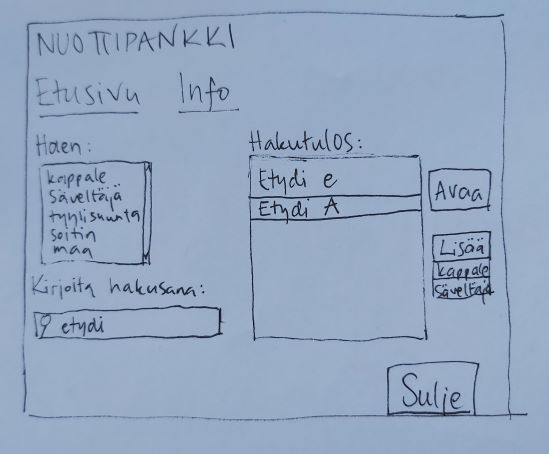 NUOTTIPANKKI
Etusivu Info
Haen:
kappale
Säveltäjä
tyylisuunta
soitin
maa
Kirjoita hakusana:
etydi
Hakutulos:
Etydi e
Etydi A
Avaa
Lisää
kappale
Säveltäjä
Sulje